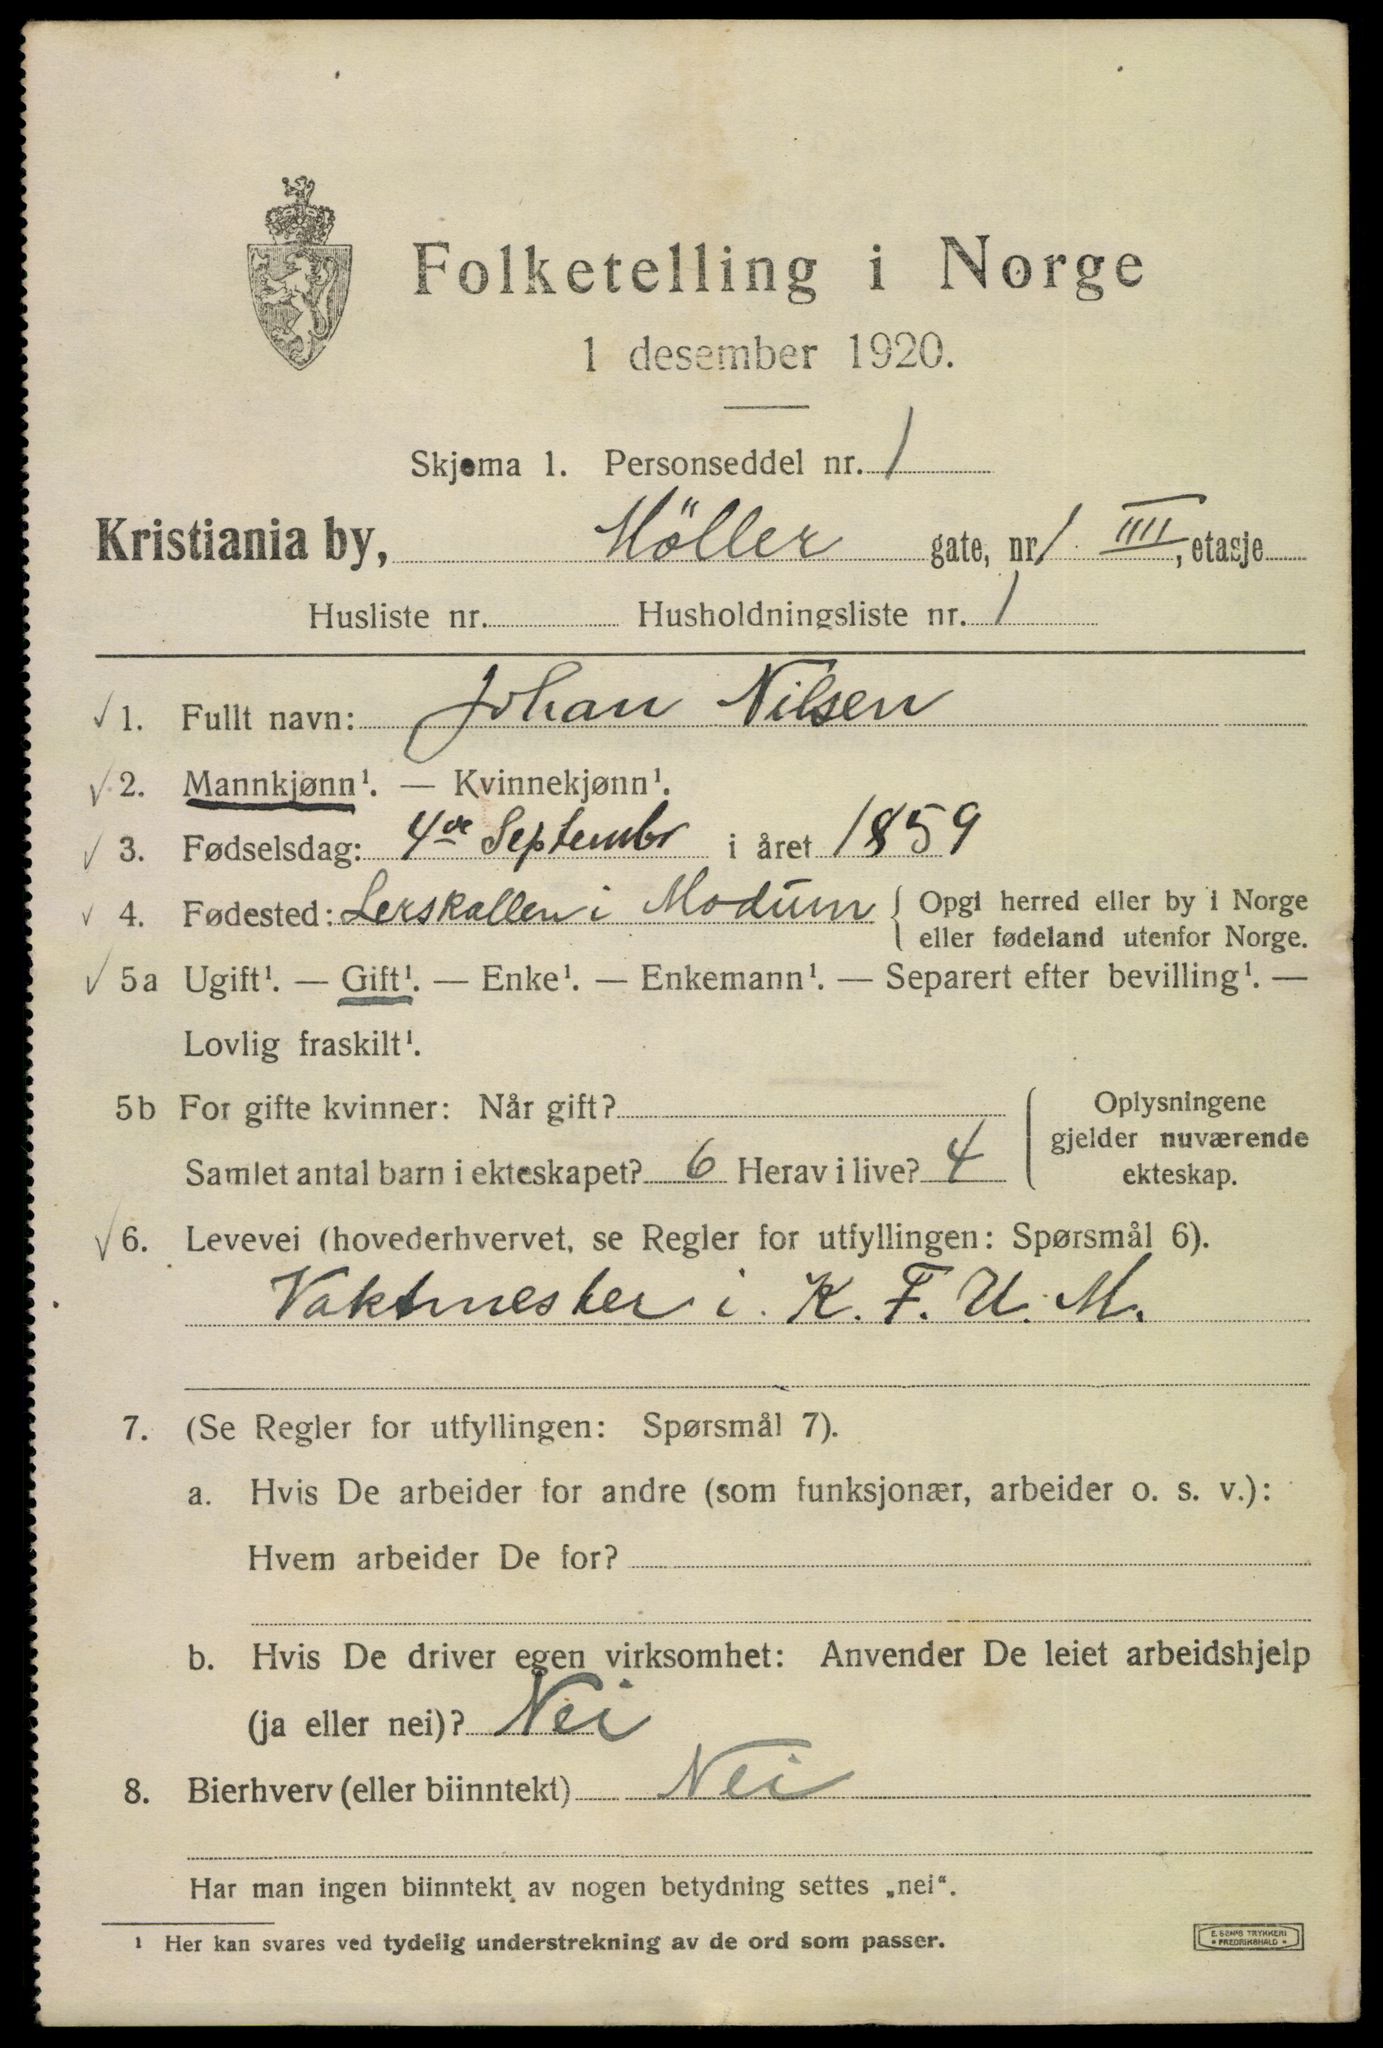 Folketelling i Norge
1 desember 1920.
Skjema 1. Personseddel nr. 1
Kristiania by, Möller gate, nr. 1 IIII, etasje
Husliste nr. Husholdningsliste nr. 1
✓ 1. Fullt navn: Johan Nilsen
✓ 2. Mannkjønn¹. — Kvinnekjønn¹.
✓ 3. Fødselsdag: 4de Septembr i året 1859
✓ 4. Fødested: Lerskallen i Modum { Opgi herred eller by i Norge
eller fødeland utenfor Norge.
✓ 5a Ugift¹. — Gift¹. — Enke¹. — Enkemann¹. — Separert efter bevilling¹. —
Lovlig fraskilt¹.
5b For gifte kvinner: Når gift?
Samlet antal barn i ekteskapet? 6 Herav i live? 4
{ Oplysningene
gjelder nuværende
ekteskap.
✓ 6. Levevei (hovederhvervet, se Regler for utfyllingen: Spørsmål 6).
Vaktmester i. K. F. U. M.
7. (Se Regler for utfyllingen: Spørsmål 7).
a. Hvis De arbeider for andre (som funksjonær, arbeider o. s. v.):
Hvem arbeider De for?
b. Hvis De driver egen virksomhet: Anvender De leiet arbeidshjelp
(ja eller nei)? Nei
8. Bierhverv (eller biinntekt) Nei
Har man ingen biinntekt av nogen betydning settes „nei“.
¹ Her kan svares ved tydelig understrekning av de ord som passer.
E. SEM'S TRYKKERI
• FREDRIKSHALD •